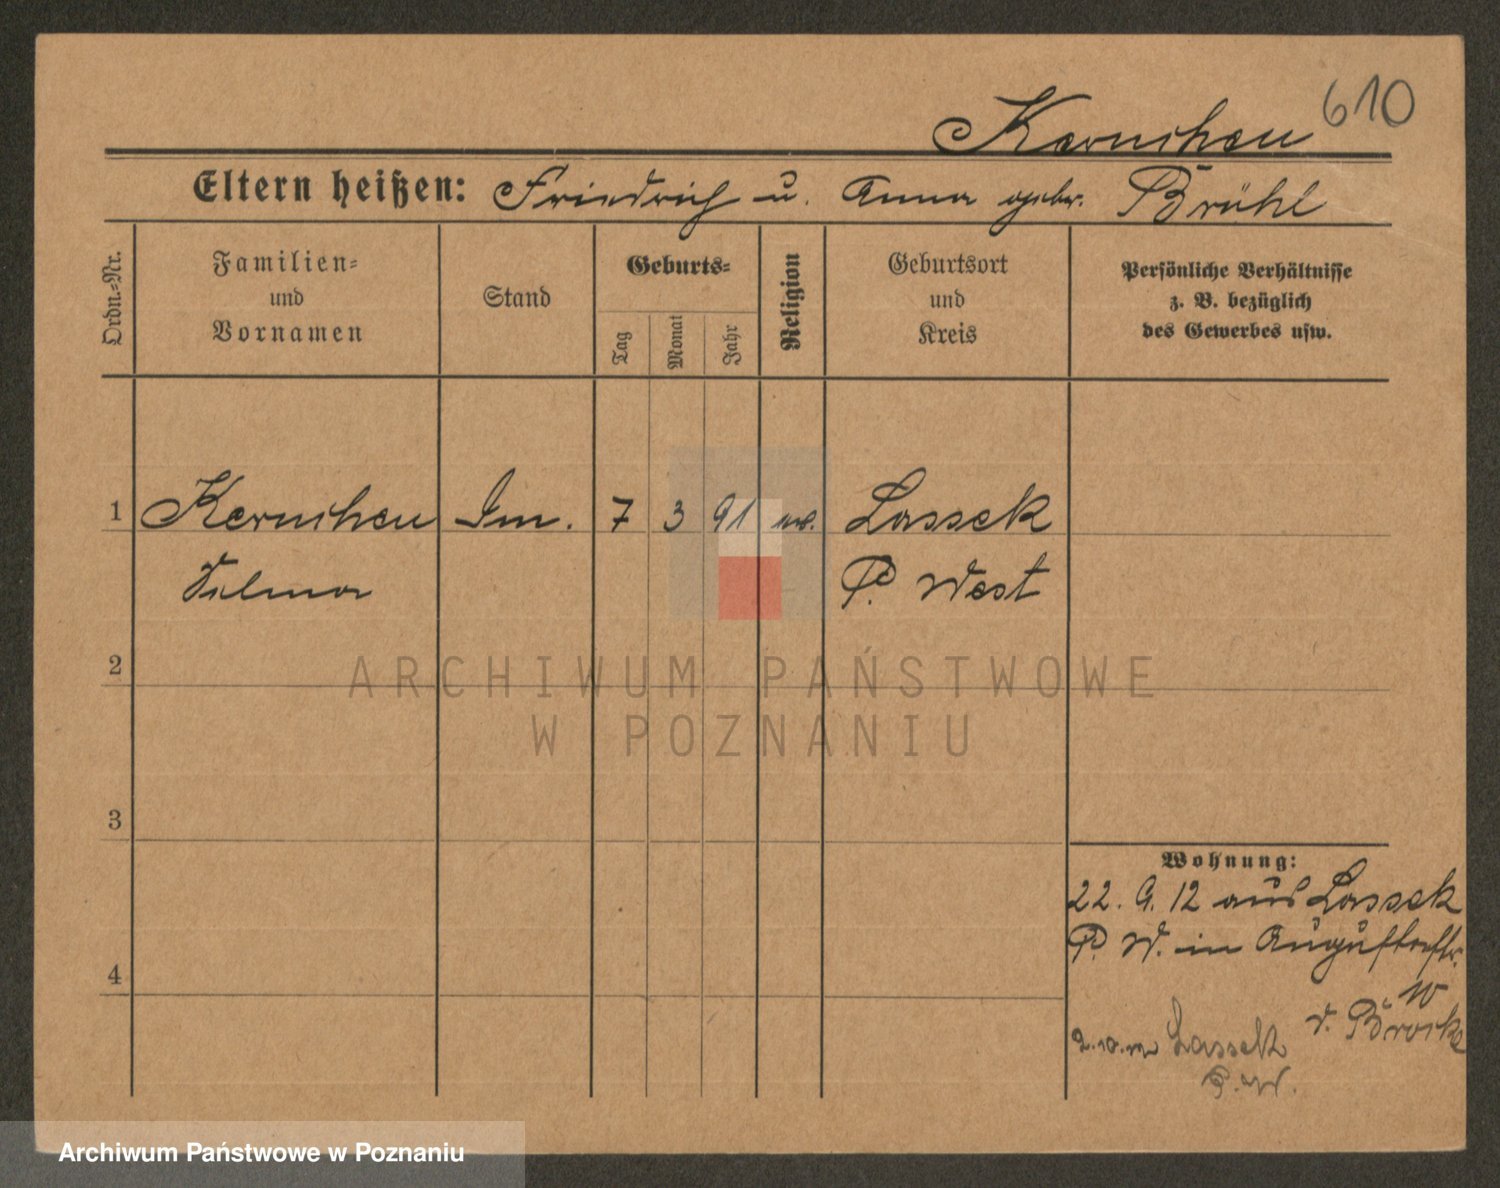 610
Kernchen
Eltern heißen: Friedrich u. Anna gebr. Brühl
Ordn.-Nr.
Familien-
und
Vornamen
Stand
Geburts-
Tag
Monat
Jahr
Religion
Geburtsort
und
Kreis
Persönliche Verhältnisse
z. B. bezüglich
des Gewerbes usw.
1 Kernchen 7 3 91 Lassek
P. West
2
ARCHIWUM PAŃSTWOWE
W POZNANIU
3
4
Wohnung:
22. 9. 12 aus Lassek
P. W. in Augustastr.
10
Lassek
P. W.
Archiwum Państwowe w Poznaniu